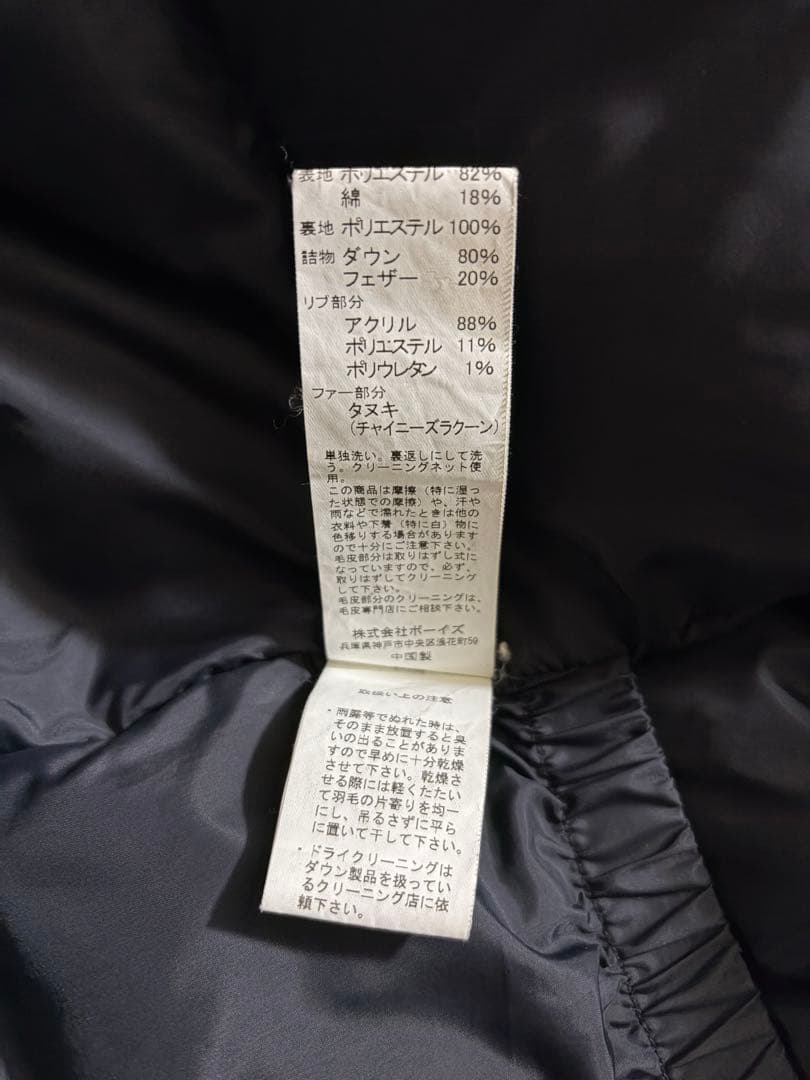 表地 ポリエステル 82%
綿 18%
裏地 ポリエステル 100%
詰物 ダウン 80%
フェザー 20%
リブ部分
アクリル 88%
ポリエステル 11%
ポリウレタン 1%
ファー部分
タヌキ
(チャイニーズラクーン)
単独洗い。裏返しにして洗
う。クリーニングネット使
用。
この商品は摩擦（特に湿っ
た状態での摩擦）や、汗や
雨などで濡れたときは他の
衣料や下着（特に白）物に
色移りする場合があります
ので十分にご注意下さい。
毛皮部分は取りはずし式に
なっていますので、必ず、
取りはずしてクリーニング
して下さい。
毛皮部分のクリーニングは、
毛皮専門店にご相談下さい。
株式会社ボーイズ
兵庫県神戸市中央区浪花町59
中国製
取扱い上の注意
・雨露等でぬれた時は、
そのまま放置すると臭
いの出ることがありま
すので早めに十分乾燥
させて下さい。乾燥さ
せる際には軽くたたい
て羽毛の片寄りを均一
にし、吊るさずに平ら
に置いて干して下さい。
・ドライクリーニングは
ダウン製品を扱ってい
るクリーニング店に依
頼下さい。